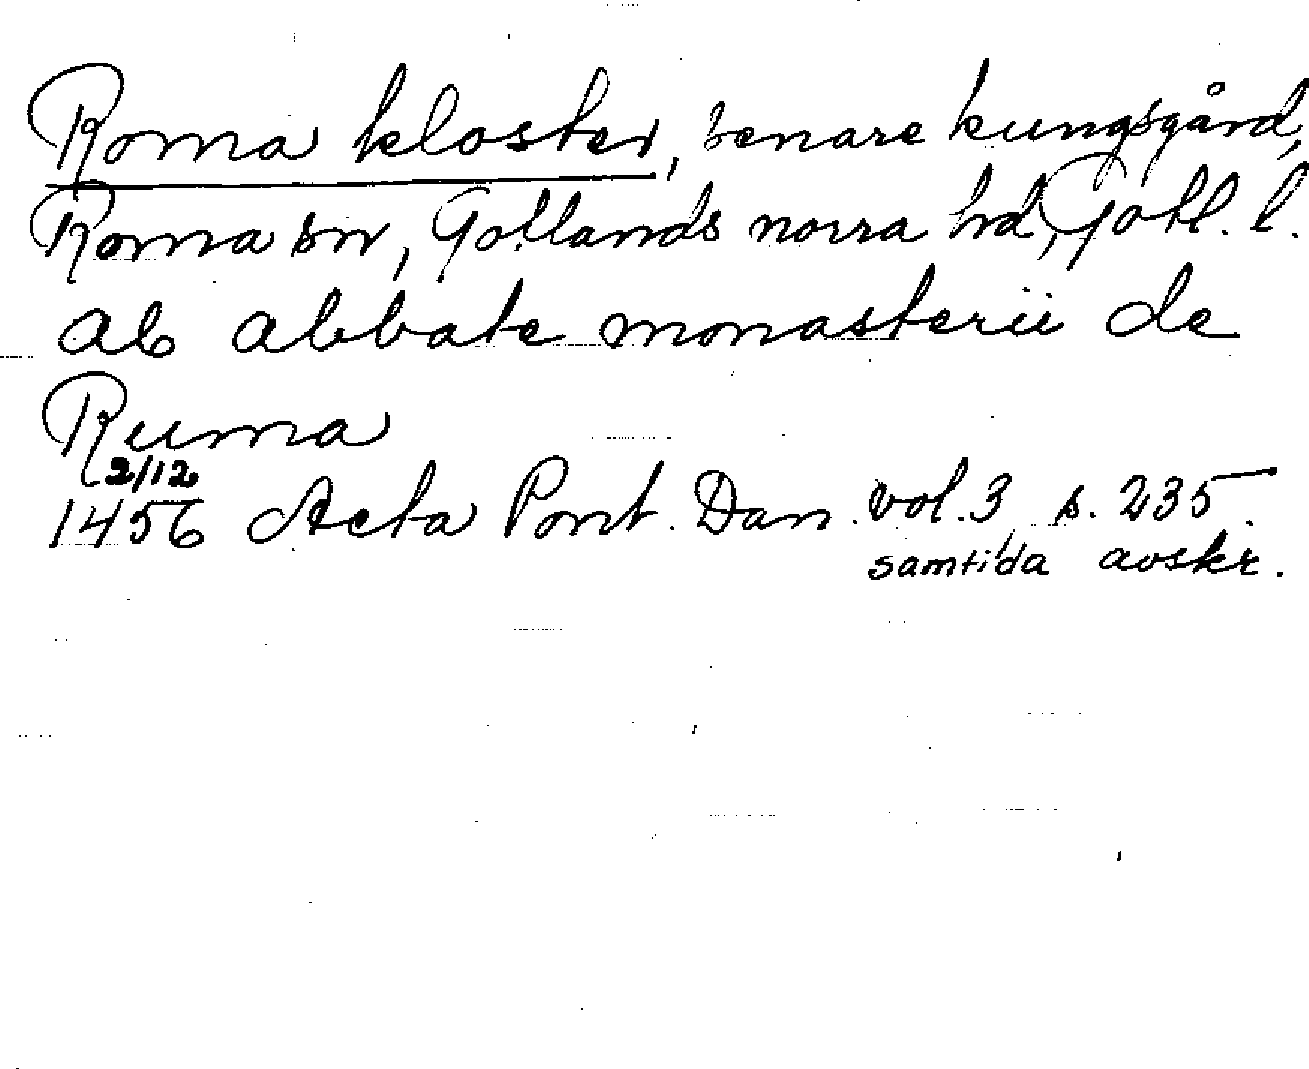 Roma kloster, senare kungsgård,
Roma sn, Gotlands norra hd, Gotl. l.
Ab abbate monasterii de
Ruma
2/12
1456 Acta Pont. Dan. vol. 3 s. 235.
samtida avskr.